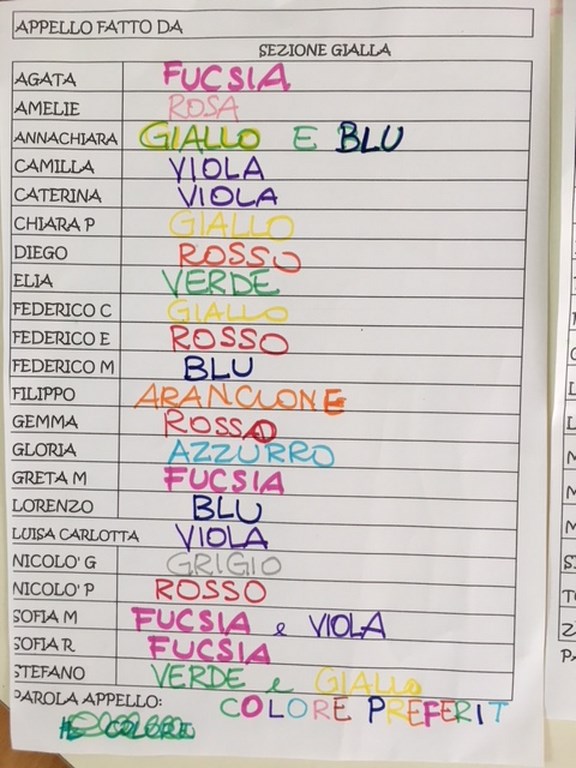 APPELLO FATTO DA
SEZIONE GIALLA
AGATA FUCSIA
AMELIE ROSA
ANNACHIARA GIALLO E BLU
CAMILLA VIOLA
CATERINA VIOLA
CHIARA P GIALLO
DIEGO ROSSO
ELIA VERDE
FEDERICO C GIALLO
FEDERICO E ROSSO
FEDERICO M BLU
FILIPPO ARANCIONE
GEMMA ROSSO
GLORIA AZZURRO
GRETA M FUCSIA
LORENZO BLU
LUISA CARLOTTA VIOLA
NICOLO' G GRIGIO
NICOLO' P ROSSO
SOFIA M FUCSIA e VIOLA
SOFIA R FUCSIA
STEFANO VERDE e GIALLO
PAROLA APPELLO: COLORE PREFERIT